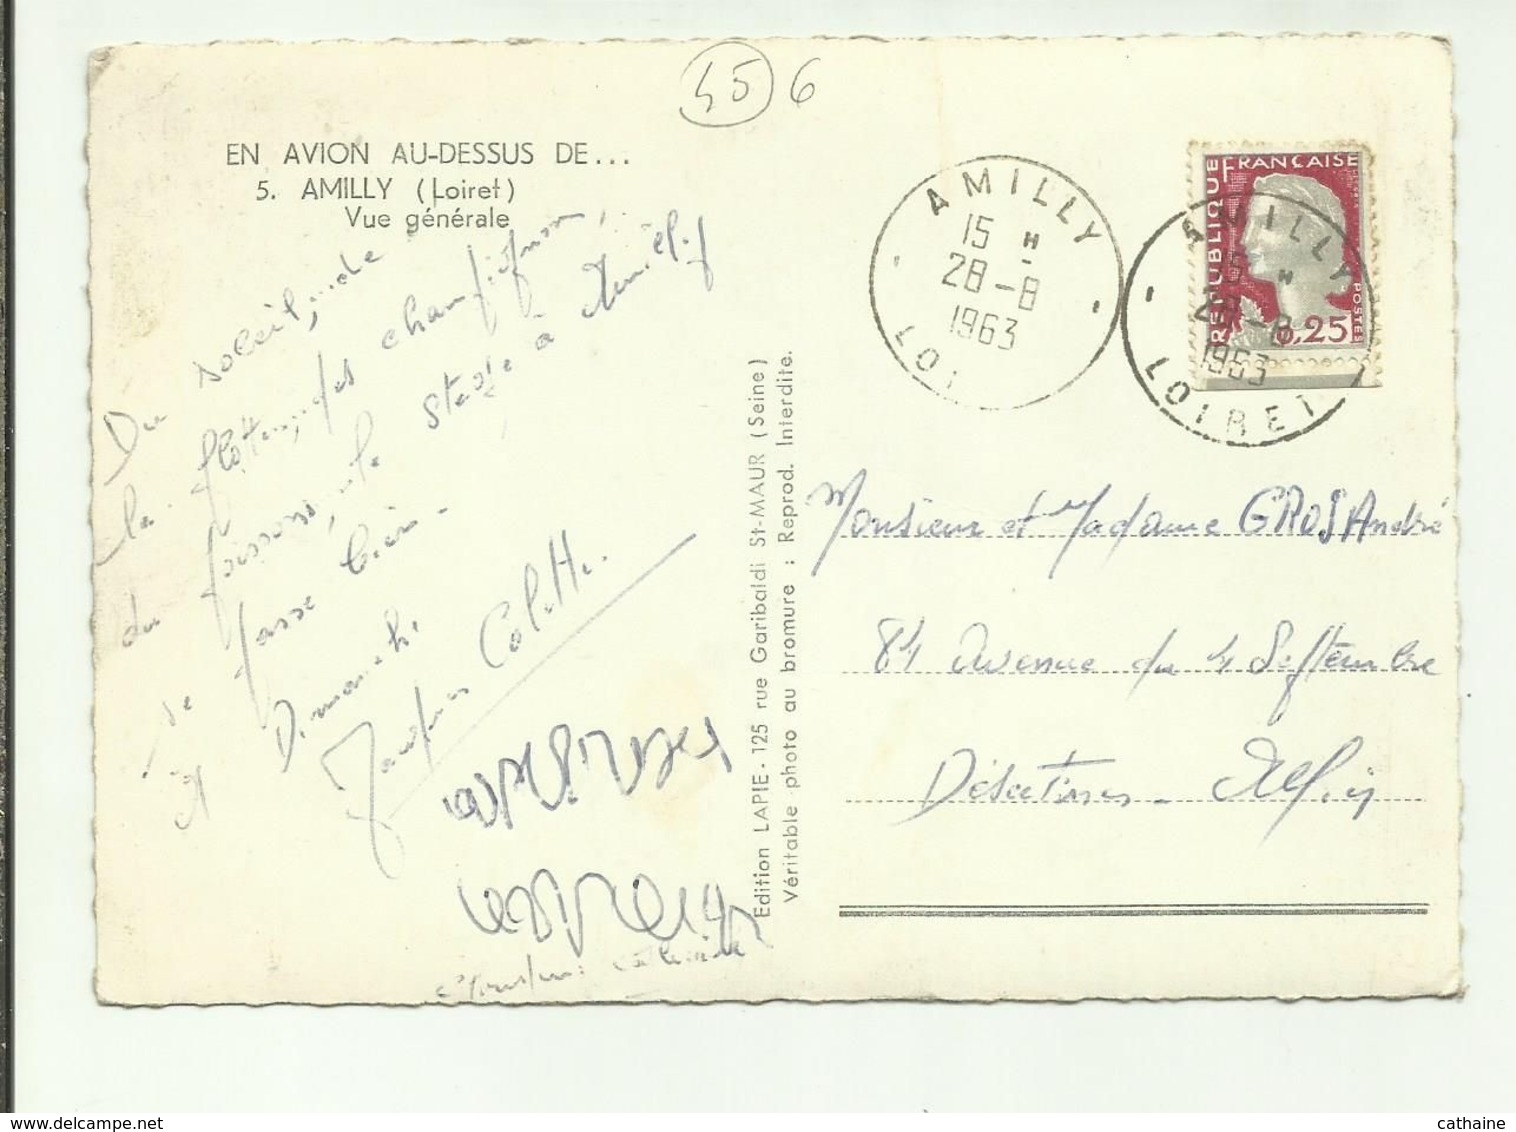 45 6
EN AVION AU-DESSUS DE...
5. AMILLY (Loiret)
Vue générale
Du soleil, de
la flotte, des champignons,
du poisson, le stage à
se passe bien.
A Dimanche
Jacques Colette.
Edition LAPIE - 125 rue Garibaldi St-MAUR (Seine)
Véritable photo au bromure : Reprod. Interdite.
AMILLY
15 H
28-8
1963
LOI
RÉPUBLIQUE FRANÇAISE
POSTES
0,25
AMILLY
15 H
28-8
1963
LOIRET
Monsieur et Madame GROS André
81 Avenue du 4 Septembre
Désertines - Allier
cathaine